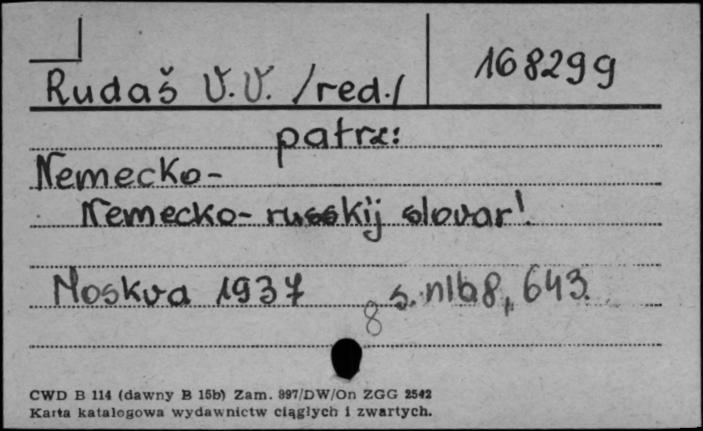 168299
Rudaš V.V. /red./
patrz:
Nemecko-
Nemecko-russkij slovar'.
Moskva 1937 s. nlb 8, 643.
8
CWD B 114 (dawny B 15b) Zam. 897/DW/On ZGG 2542
Karta katalogowa wydawnictw ciągłych i zwartych.